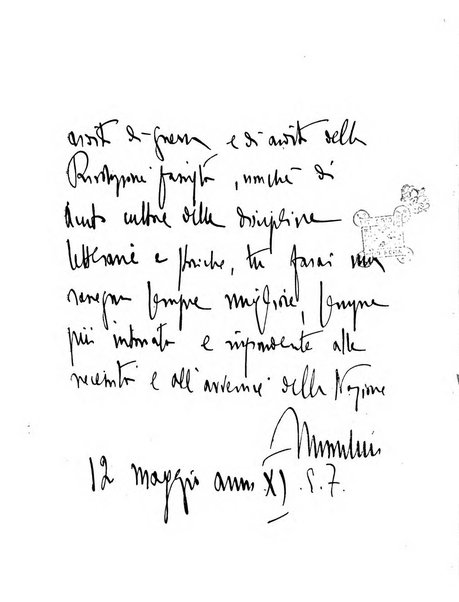 ardito di guerra e di ardito della
Rivoluzione fascista, nonché di
dotto cultore delle discipline
letterarie e storiche, tu farai una
rassegna sempre migliore, sempre
più intonata e rispondente alle
necessità e all'avvenire della Nazione
Mussolini
12 maggio anno XI. E. F.